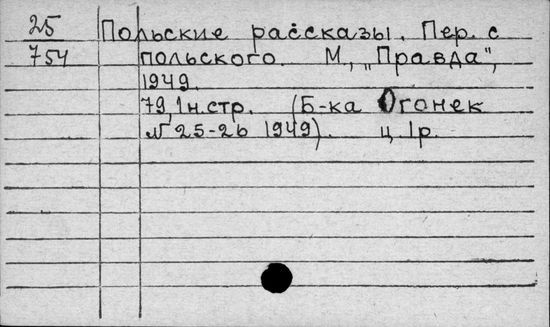 25 Польские рассказы. Пер. с
754 польского. М., „Правда",
1949.
79,1н.стр. (Б-ка Огонек
№ 25-26 1949). ц. 1р.